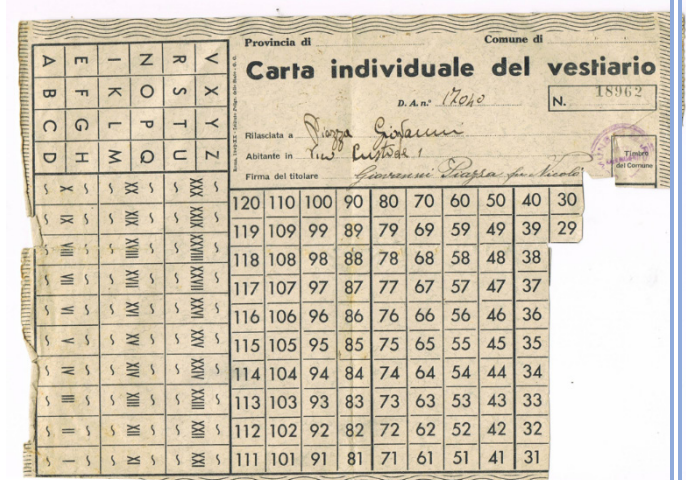 Provincia di Comune di
Carta individuale del vestiario
D. A. n.° 17040
N. 18962
Rilasciata a Piazza Giovanni
Abitante in
Firma del titolare Giovanni Piazza fu Nicolò
Timbro
del Comune
A E I N R V
B F K O S X
C G L P T Y
D H M Q U Z
X XX XXX
IX XIX XXIX
VIII XVIII XXVIII
VII XVII XXVII
VI XVI XXVI
V XV XXV
IV XIV XXIV
III XIII XXIII
II XII XXII
I XI XXI
120 110 100 90 80 70 60 50 40 30
119 109 99 89 79 69 59 49 39 29
118 108 98 88 78 68 58 48 38
117 107 97 87 77 67 57 47 37
116 106 96 86 76 66 56 46 36
115 105 95 85 75 65 55 45 35
114 104 94 84 74 64 54 44 34
113 103 93 83 73 63 53 43 33
112 102 92 82 72 62 52 42 32
111 101 91 81 71 61 51 41 31